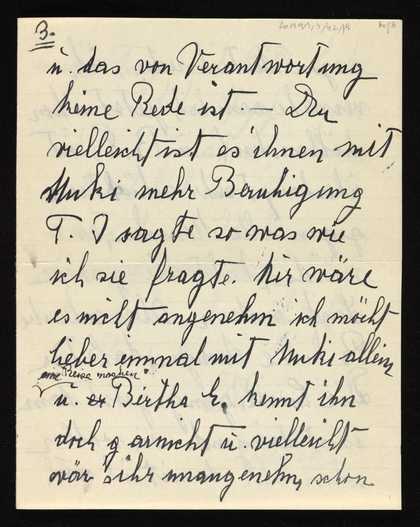 3.
u. das von Verantwortung
keine Rede ist — Du
vielleicht ist es ihnen mit
Muki mehr Beruhigung
T. I sagte so was wie
ich sie fragte. Mir wäre
es nicht angenehm ich möcht
lieber einmal mit Muki allein
eine Reise machen
u. er Birtha E. kennt ihn
doch garnicht u. vielleicht
wär's ihr unangenehm, schon